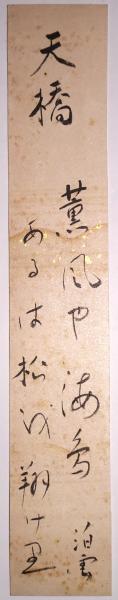 天橋
薫風や海鳥
あるは松を翔け里
泊雲